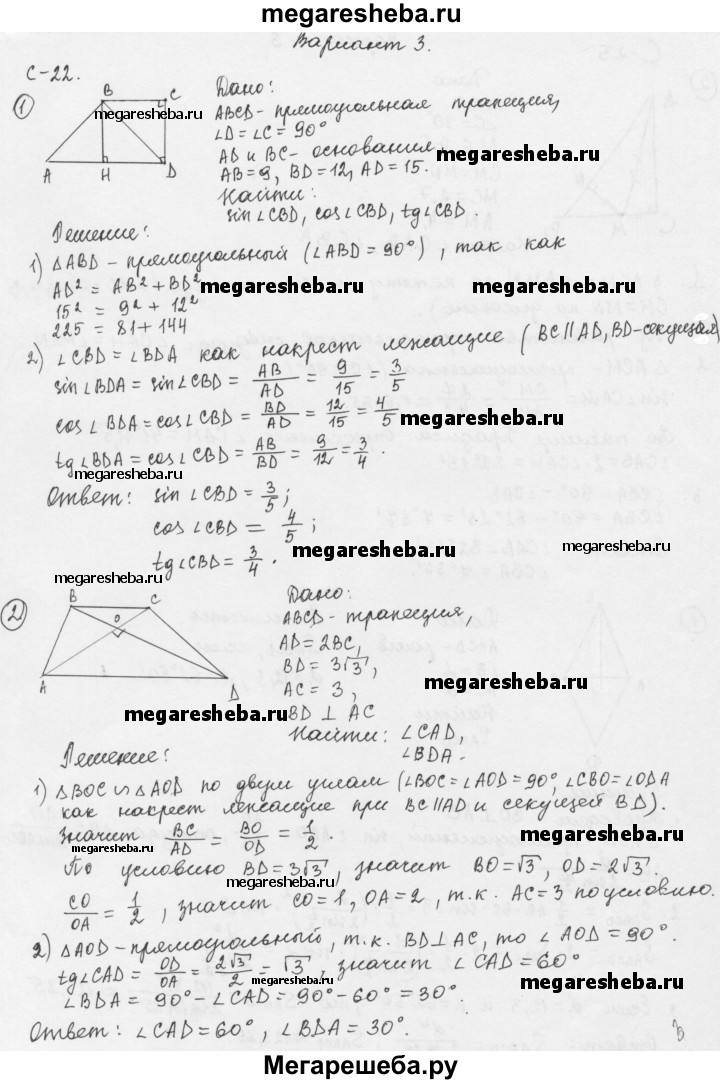 megaresheba.ru
Вариант 3.
С-22.
① Дано:
B C
megaresheba.ru
ABCD - прямоугольная трапеция,
∠D = ∠C = 90°
AD и BC - основания megaresheba.ru
A H D
AB = 9, BD = 12, AD = 15.
Найти:
sin∠CBD, cos∠CBD, tg∠CBD.
Решение:
1) △ABD - прямоугольный (∠ABD = 90°), так как
AD² = AB² + BD² megaresheba.ru megaresheba.ru
15² = 9² + 12²
225 = 81 + 144
2) ∠CBD = ∠BDA как накрест лежащие (BC∥AD, BD-секущая)
sin∠BDA = sin∠CBD = AB/AD = 9/15 = 3/5
cos∠BDA = cos∠CBD = BD/AD = 12/15 = 4/5 megaresheba.ru
tg∠BDA = cos∠CBD = AB/BD = 9/12 = 3/4.
Ответ: sin∠CBD = 3/5;
cos∠CBD = 4/5;
megaresheba.ru megaresheba.ru
tg∠CBD = 3/4.
megaresheba.ru
② Дано:
B C
O
ABCD - трапеция,
AD = 2BC,
BD = 3√3,
A D
AC = 3, megaresheba.ru
megaresheba.ru BD ⊥ AC
Найти: ∠CAD,
∠BDA.
Решение:
1) △BOC ∽ △AOD по двум углам (∠BOC = ∠AOD = 90°, ∠CBO = ∠ODA
как накрест лежащие при BC∥AD и секущей BD).
Значит BC/AD = BO/OD = 1/2.
megaresheba.ru megaresheba.ru
По условию BD = 3√3, значит BO = √3, OD = 2√3.
megaresheba.ru
CO/OA = 1/2, значит CO = 1, OA = 2, т.к. AC = 3 по условию.
2) △AOD - прямоугольный, т.к. BD⊥AC, то ∠AOD = 90°.
tg∠CAD = OD/OA = 2√3/2 = √3, значит ∠CAD = 60°
∠BDA = 90° - ∠CAD = 90° - 60° = 30°
megaresheba.ru megaresheba.ru
Ответ: ∠CAD = 60°, ∠BDA = 30°.
Мегарешеба.ру